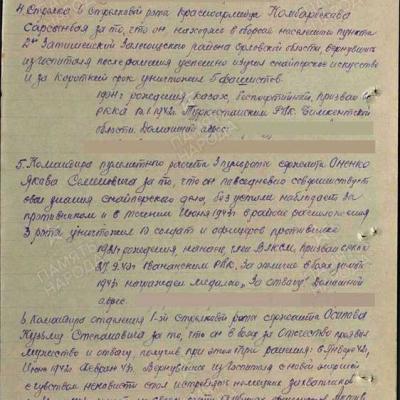 4. Стрелка 6 стрелковой роты красноармейца Комбарбекава
Сарсенбая за то, что он находясь в обороне населенного пункта
2ой Затишенский Залегощского района Орловской области вернувшись
из госпиталя после ранения успешно изучил снайперское искусство
и за короткий срок уничтожил 5 фашистов.
рождения, казах, беспартийный, призван в
РККА 1942г. Туркестанским РВК. Чимкентской
области. Домашний адрес
5. Командира пулеметного расчета 3 пульроты сержанта Оненко
Якова Семеновича за то, что он повседневно совершенствует
свои знания снайперского дела, без устали наблюдает за
противником и в течении Июня 1943г. в районе расположения
3 роты уничтожил 10 солдат и офицеров противника
рождения, нанаец, член ВЛКСМ, призван
РВК. За отличие в боях
1943 награжден медалью "За отвагу". Домашний
адрес.
6. Командира отделения 1-й стрелковой роты сержанта Осипова
Кузьму Степановича за то, что он в боях за Отечество проявил
мужество и отвагу, получив при этом три ранения: в Январе 42,
Июне 1942г. Феврале 43. Вернувшись из госпиталя с новой энергией
и чувством ненависти стал истреблять немецких захватчиков